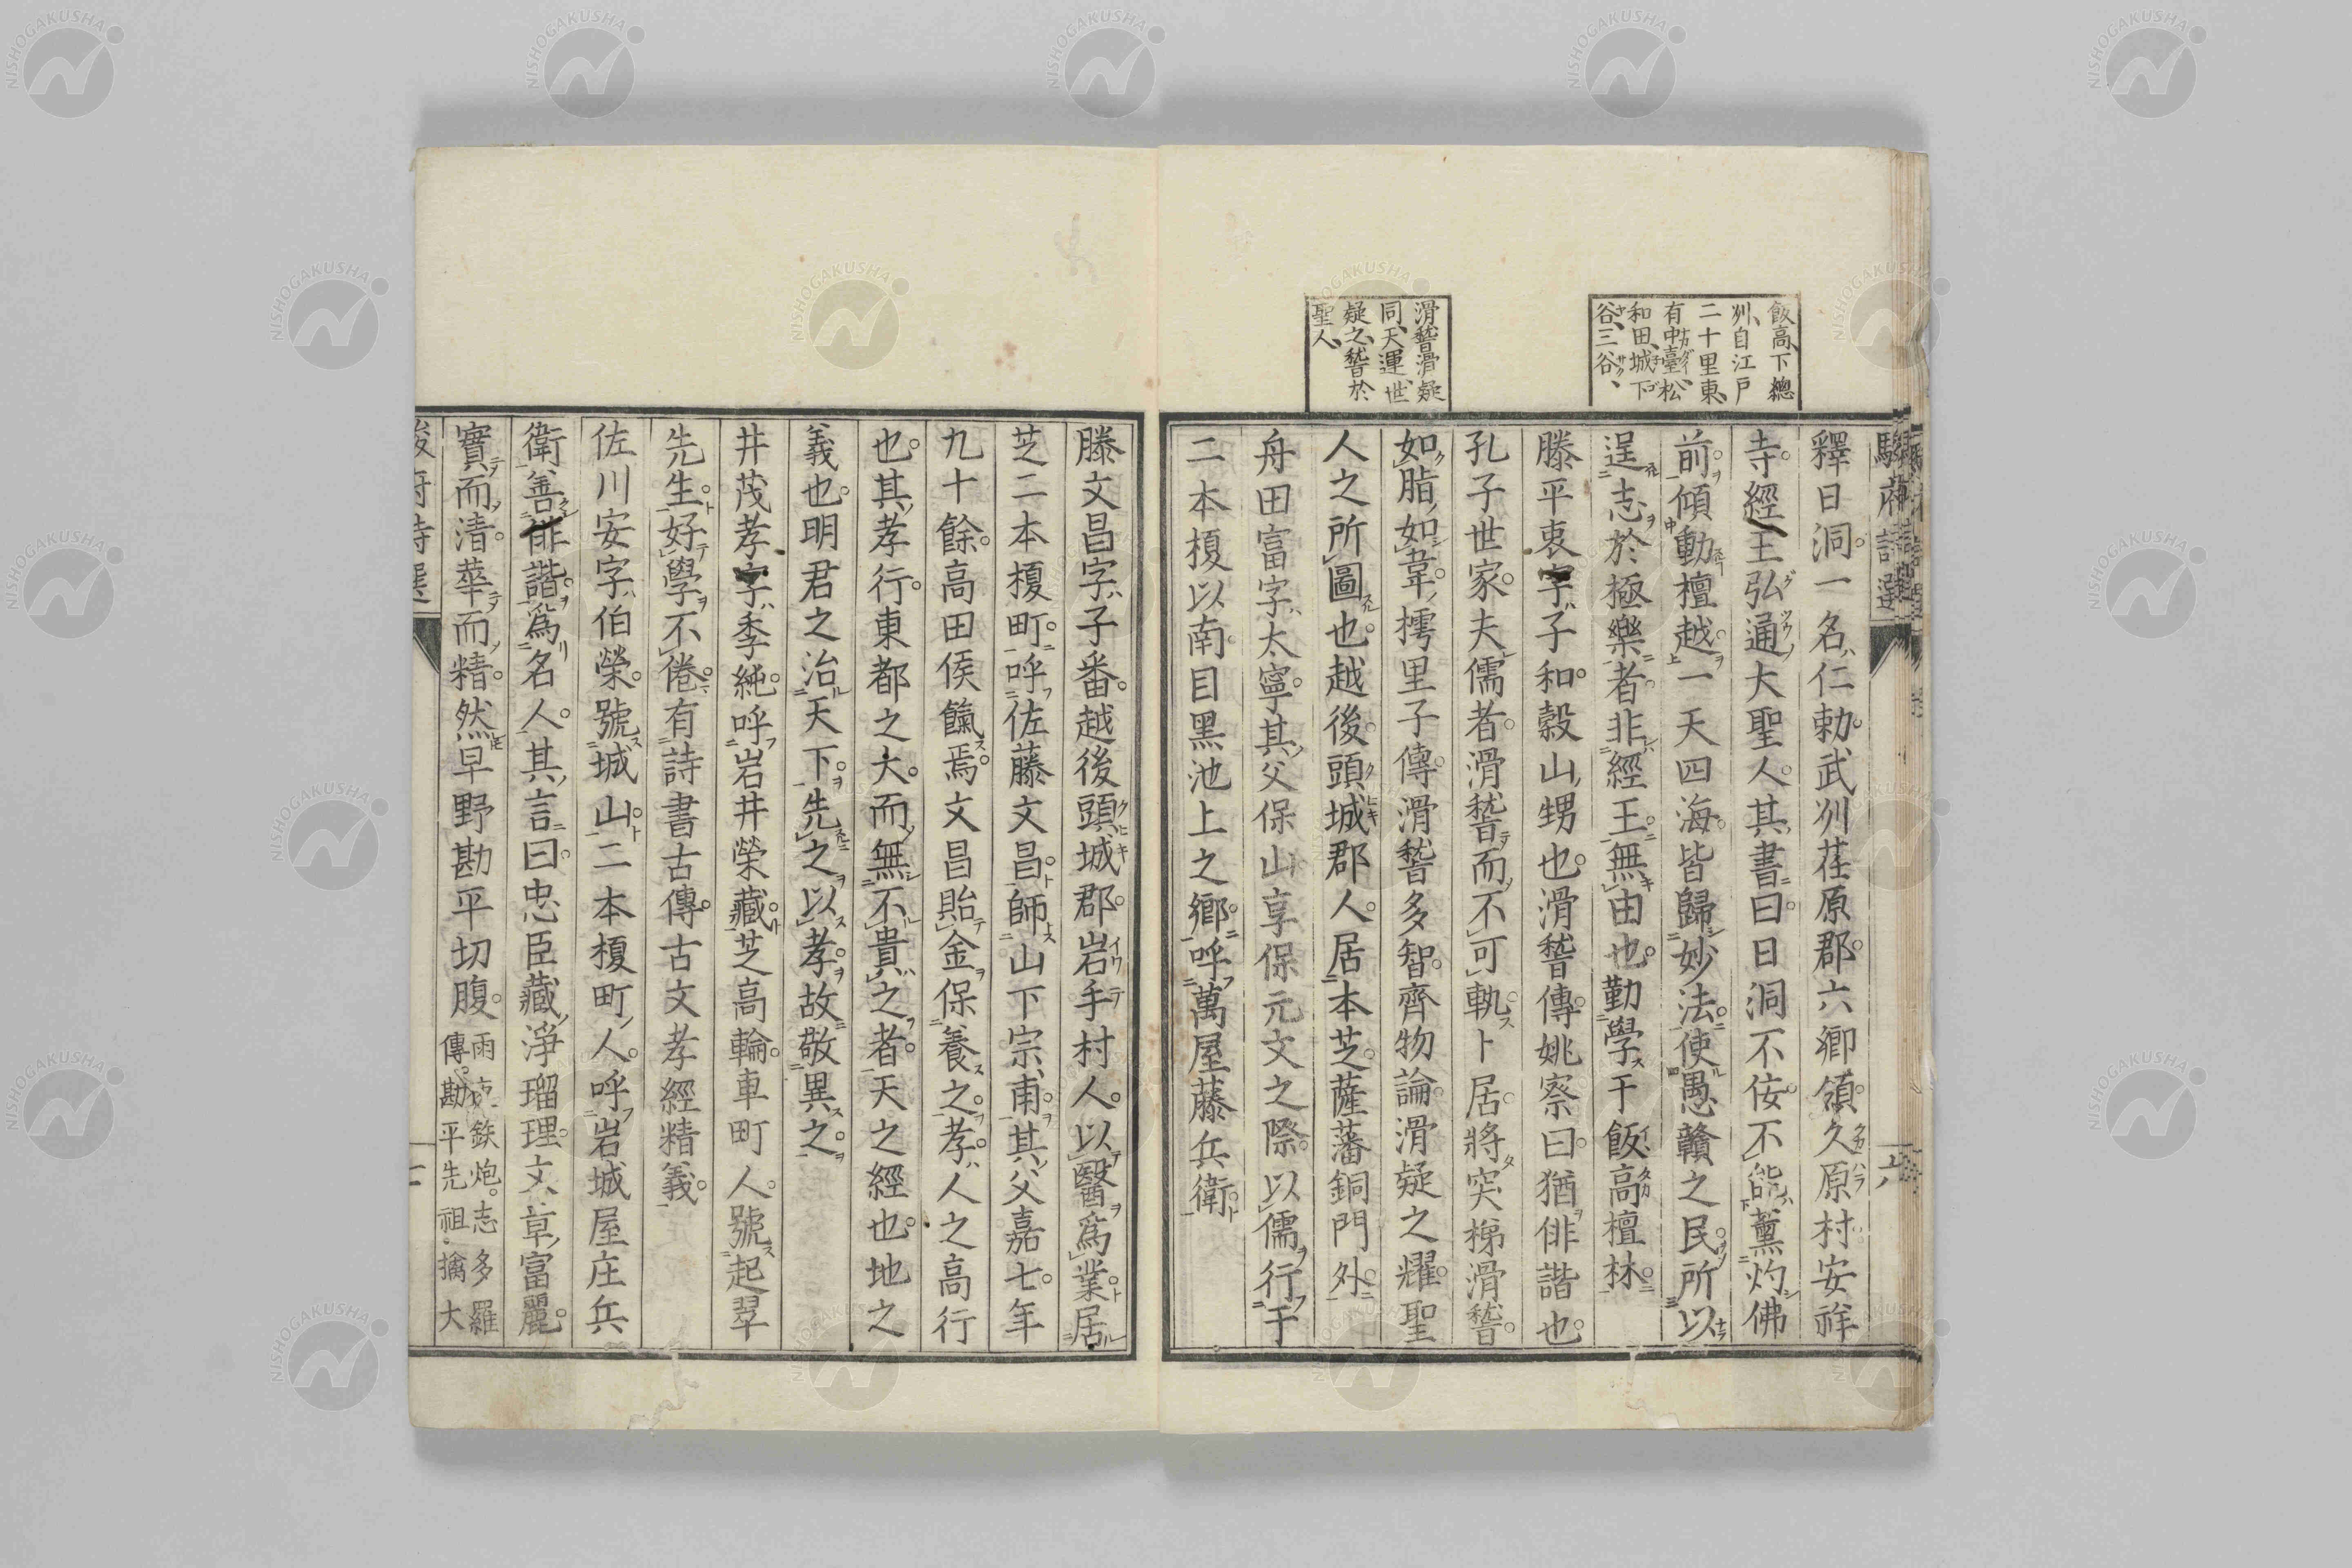 飯高、下總
州、自江戸
二十里東、
有中臺松
和田城下
谷、三谷、
滑稽滑疑
同、天運、世
疑之、稽於
聖人、
釋日洞一名仁勅武州荏原郡六郷領久原村安祥
寺經王弘通大聖人其書曰日洞不佞不能薰灼佛
前傾動檀越一天四海皆歸妙法使愚贛之民所以
逞志於極樂者非經王無由也勤學于飯高檀林
滕平衷字子和穀山甥也滑稽傳姚察曰猶俳諧也
孔子世家夫儒者滑稽而不可軌卜居將突梯滑稽
如脂如韋樗里子傳滑稽多智齊物論滑疑之耀聖
人之所圖也越後頸城郡人居本芝薩藩銅門外
舟田富字太寧其父保山享保元文之際以儒行于
二本榎以南目黑池上之郷呼萬屋藤兵衛
滕文昌字子番越後頸城郡岩手村人以醫爲業居
芝二本榎町呼佐藤文昌師山下宗甫其父嘉七年
九十餘高田侯餼焉文昌貽金保養之孝人之高行
也其孝行東都之大而無不貴之者天之經也地之
義也明君之治天下先之以孝故敬異之
井茂孝字季純呼岩井榮藏芝高輪車町人號起翠
先生好學不倦有詩書古傳古文孝經精義
佐川安字伯榮號城山二本榎町人呼岩城屋庄兵
衛善俳諧爲名人其言曰忠臣藏淨瑠理文草富麗
實而清華而精然早野勘平切腹
雨夜鉄炮志多羅
傳勘平先祖擒大
駿府詩選